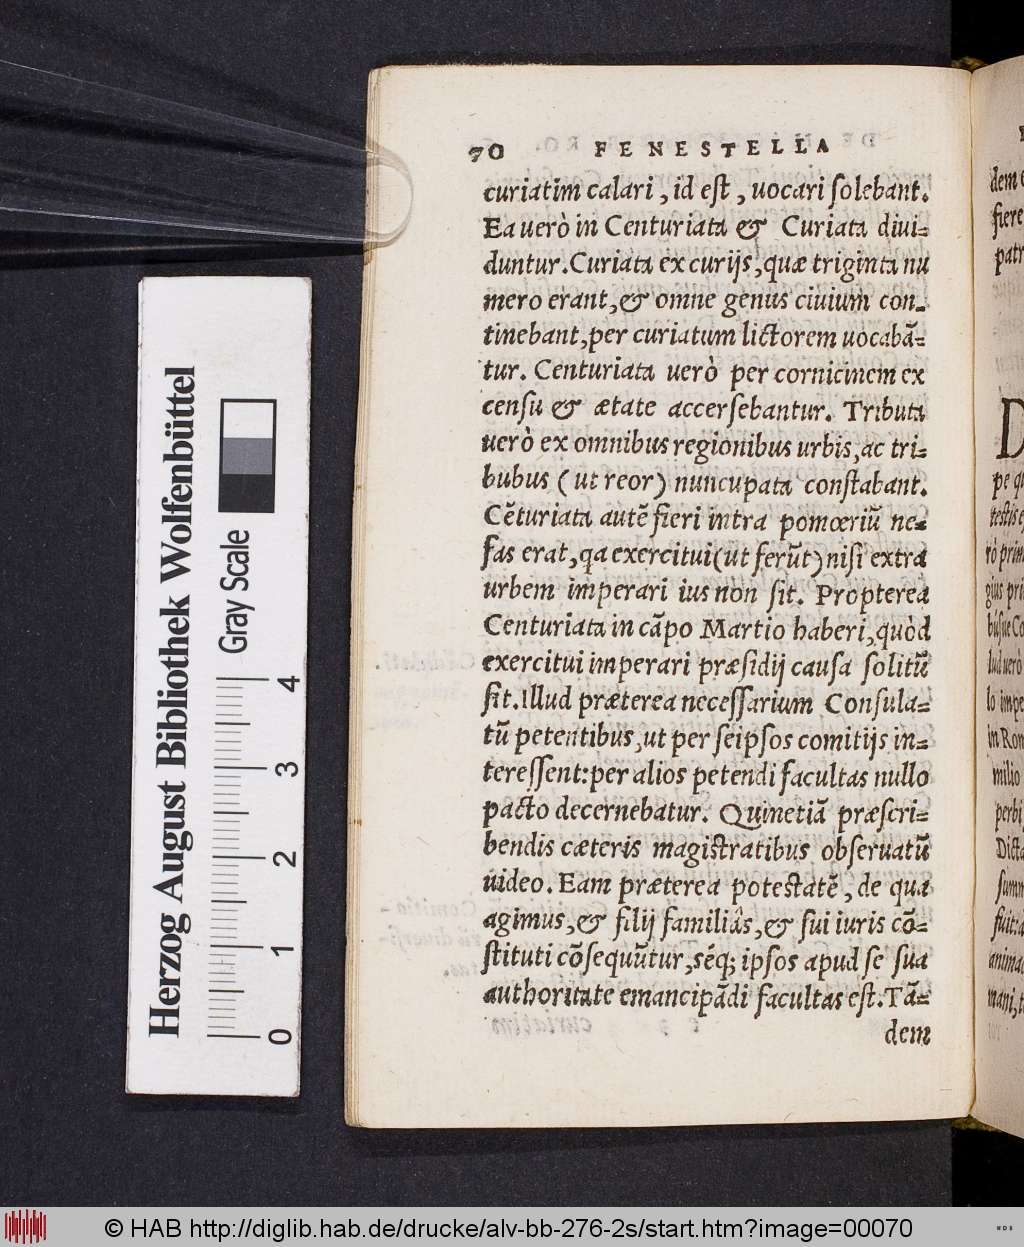 70 FENESTELLA
curiatim calari, id est, uocari solebant.
Ea uerò in Centuriata & Curiata diui-
duntur. Curiata ex curijs, quæ triginta nu
mero erant, & omne genus ciuium con-
tinebant, per curiatum lictorem uocabã-
tur. Centuriata uerò per cornicinem ex
censu & ætate accersebantur. Tributa
uerò ex omnibus regionibus urbis, ac tri-
bubus (ut reor) nuncupata constabant.
Cẽturiata autẽ fieri intra pomœriũ ne-
fas erat, qa exercitui (ut ferũt) nisi extra
urbem imperari ius non sit. Propterea
Centuriata in cãpo Martio haberi, quòd
exercitui imperari præsidij causa solitũ
sit. Illud præterea necessarium Consula-
tũ petentibus, ut per seipsos comitijs in-
teressent: per alios petendi facultas nullo
pacto decernebatur. Quinetiã præscri-
bendis cæteris magistratibus obseruatũ
uideo. Eam præterea potestatẽ, de qua
agimus, & filij familiâs, & sui iuris cõ-
stituti cõsequũtur, sẽq; ipsos apud se sua
authoritate emancipãdi facultas est. Tã-
dem
dem
fiere
patr
D
pe
testis
rò prin
gius pri
busue Co
lud uerò
lo impe
in Rom
milio
perbi
Dicta
summ
fuit:
anima
mani,
Herzog August Bibliothek Wolfenbüttel
Gray Scale
0 1 2 3 4
© HAB http://diglib.hab.de/drucke/alv-bb-276-2s/start.htm?image=00070
WDB